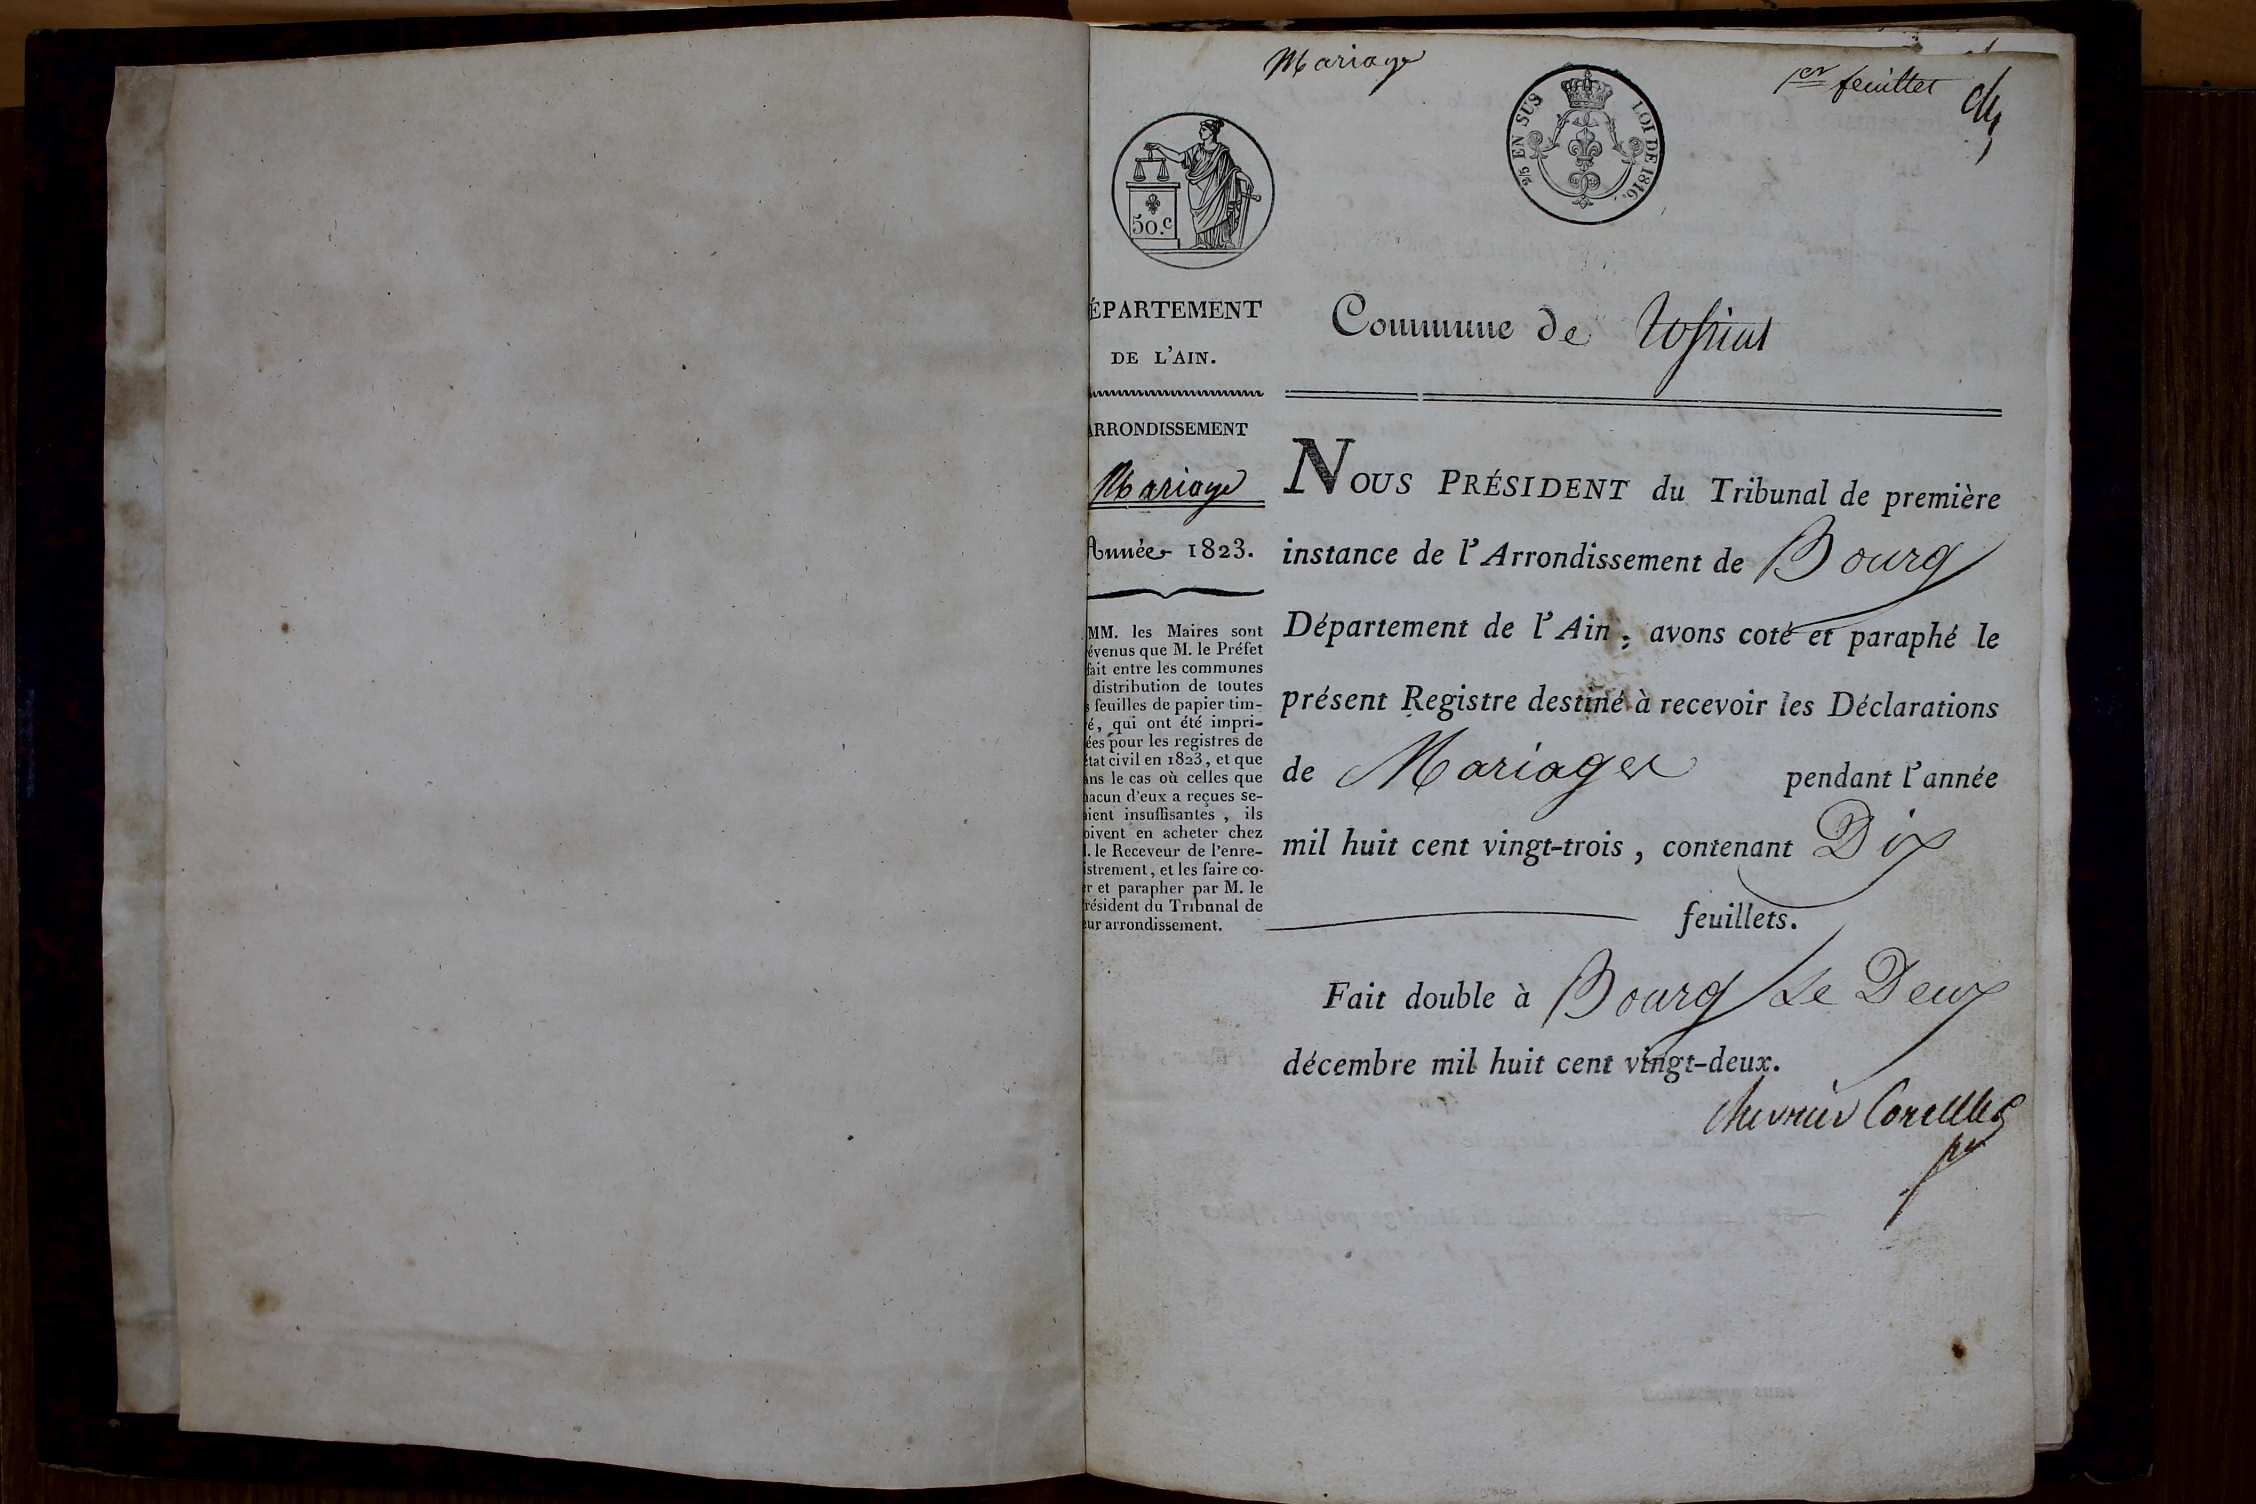 Mariage
1er feuillet
2/5 EN SUS
LOI DE 1816.
50.c
ÉPARTEMENT
DE L'AIN.
ARRONDISSEMENT
Mariage
Année 1823.
MM. les Maires sont
évenus que M. le Préfet
fait entre les communes
distribution de toutes
s feuilles de papier tim-
é, qui ont été impri-
ées pour les registres de
état civil en 1823, et que
ans le cas où celles que
hacun d'eux a reçues se-
aient insuffisantes, ils
oivent en acheter chez
l. le Receveur de l'enre-
istrement, et les faire co-
er et parapher par M. le
résident du Tribunal de
eur arrondissement.
Commune de
NOUS PRÉSIDENT du Tribunal de première
instance de l'Arrondissement de Bourg
Département de l'Ain; avons coté et paraphé le
présent Registre destiné à recevoir les Déclarations
de Mariages pendant l'année
mil huit cent vingt-trois, contenant Dix
feuillets.
Fait double à Bourg Le Deux
décembre mil huit cent vingt-deux.